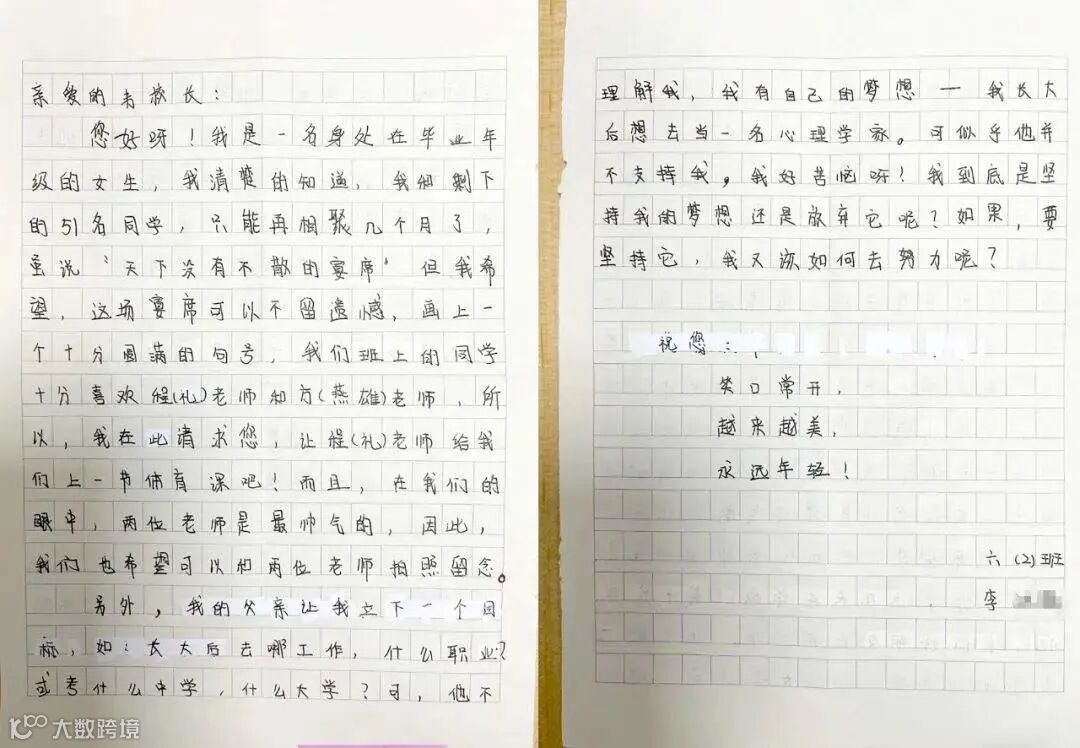 亲爱的韦校长：
您好呀！我是一名身处在毕业年
级的女生，我清楚的知道，我和剩下
的51名同学，只能再相聚几个月了，
虽说“天下没有不散的宴席”但我希
望，这场宴席可以不留遗憾，画上一
个十分圆满的句号，我们班上的同学
十分喜欢程(礼)老师和方(燕雄)老师，所
以，我在此请求您，让程(礼)老师给我
们上一节体育课吧！而且，在我们的
眼中，两位老师是最帅气的，因此，
我们也希望可以和两位老师拍照留念。
另外，我的父亲让我立下一个目
标，如：长大后去哪工作，什么职业？
或考什么中学，什么大学？可，他不
理解我，我有自己的梦想——我长大
后想去当一名心理学家。可似乎他并
不支持我，我好苦恼呀！我到底是坚
持我的梦想还是放弃它呢？如果，要
坚持它，我又该如何去努力呢？
祝您：
笑口常开，
越来越美，
永远年轻！
六(2)班
李
大数跨境